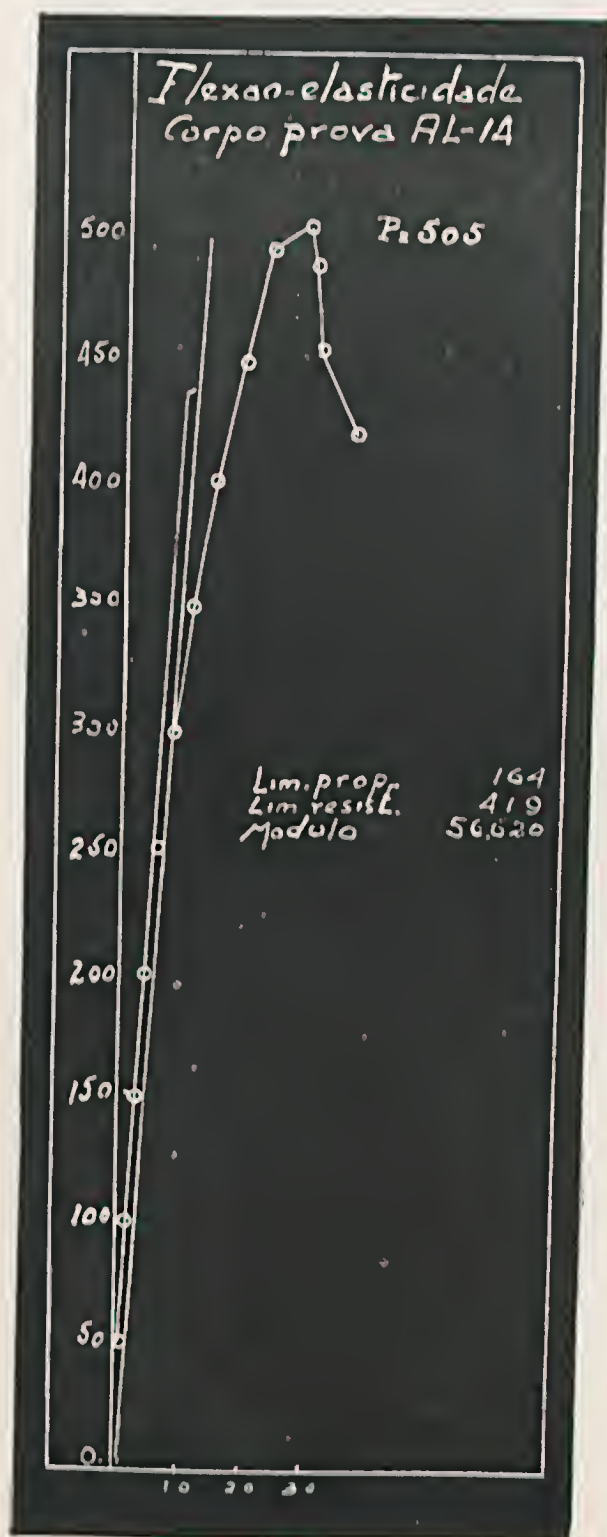 Flexao-elasticidade
Corpo prova AL-1A
P= 505
500
450
400
350
300
250
200
150
100
50
0.
Lim. propr. 164
Lim resist. 419
Modulo
10 20 30